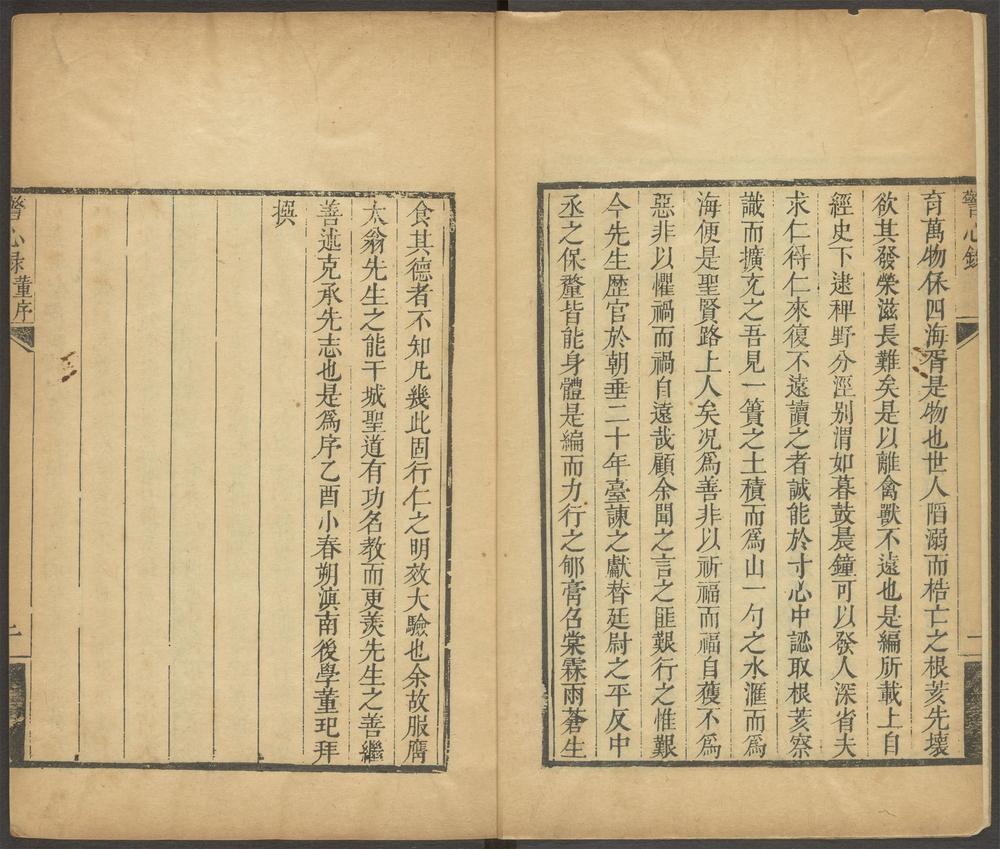 警心錄
二
育萬物保四海胥是物也世人陷溺而梏亡之根荄先壞
欲其發榮滋長難矣是以離禽獸不遠也是編所載上自
經史下逮稗野分涇别渭如暮鼓晨鐘可以發人深省夫
求仁得仁來復不遠讀之者誠能於寸心中認取根荄察
識而擴充之吾見一簣之土積而爲山一勺之水滙而爲
海便是聖賢路上人矣况爲善非以祈福而福自獲不爲
惡非以懼禍而禍自遠哉顧余聞之言之匪艱行之惟艱
今先生歷官於朝垂二十年臺諫之獻替廷尉之平反中
丞之保釐皆能身體是編而力行之郇膏召棠霖雨蒼生
食其德者不知凡幾此固行仁之明效大驗也余故服膺
太翁先生之能干城聖道有功名教而更羡先生之善繼
善述克承先志也是爲序乙酉小春朔滇南後學董玘拜
撰
警心錄董序
二